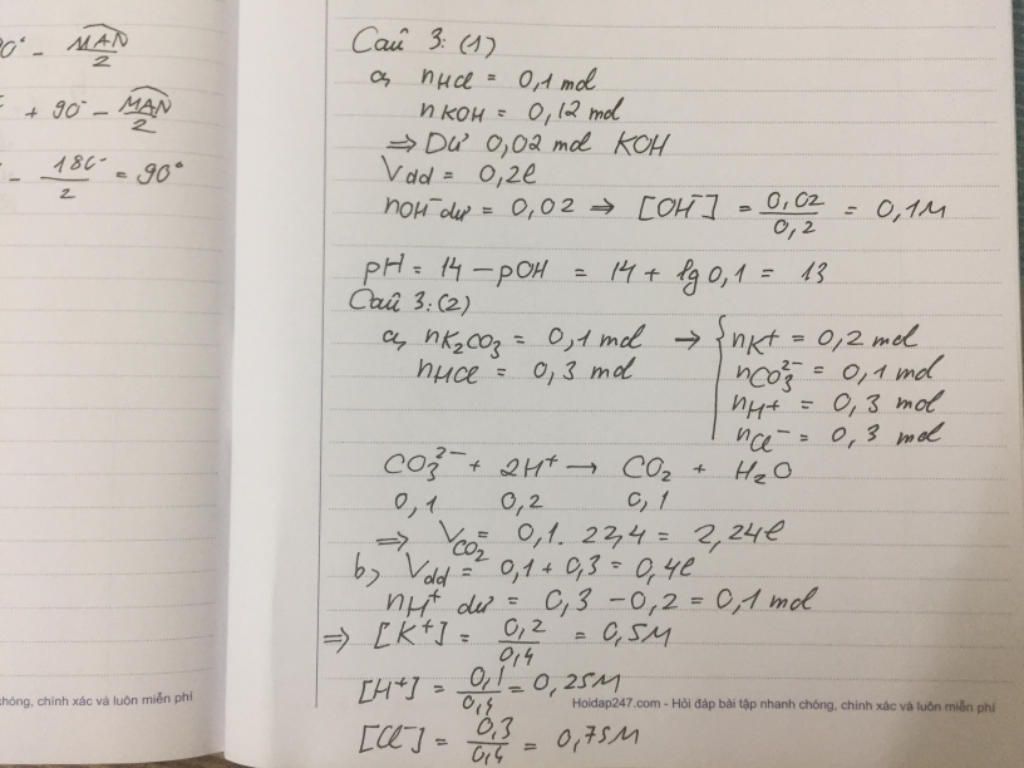 0° - MAN/2
+ 90° - MAN/2
- 180°/2 = 90°
chóng, chính xác và luôn miễn phí
Câu 3: (1)
a, nHCl = 0,1 mol
nKOH = 0,12 mol
⇒ Dư 0,02 mol KOH
Vdd = 0,2l
nOH⁻ dư = 0,02 ⇒ [OH⁻] = 0,02/0,2 = 0,1M
pH = 14 - pOH = 14 + lg 0,1 = 13
Câu 3: (2)
a, nK₂CO₃ = 0,1 mol → { nK⁺ = 0,2 mol
nHCl = 0,3 mol nCO₃²⁻ = 0,1 mol
nH⁺ = 0,3 mol
nCl⁻ = 0,3 mol
CO₃²⁻ + 2H⁺ → CO₂ + H₂O
0,1 0,2 0,1
⇒ VCO₂ = 0,1. 22,4 = 2,24l
b, Vdd = 0,1 + 0,3 = 0,4l
nH⁺ dư = 0,3 - 0,2 = 0,1 mol
⇒ [K⁺] = 0,2/0,4 = 0,5M
[H⁺] = 0,1/0,4 = 0,25M
Hoidap247.com - Hỏi đáp bài tập nhanh chóng, chính xác và luôn miễn phí
[Cl⁻] = 0,3/0,4 = 0,75M